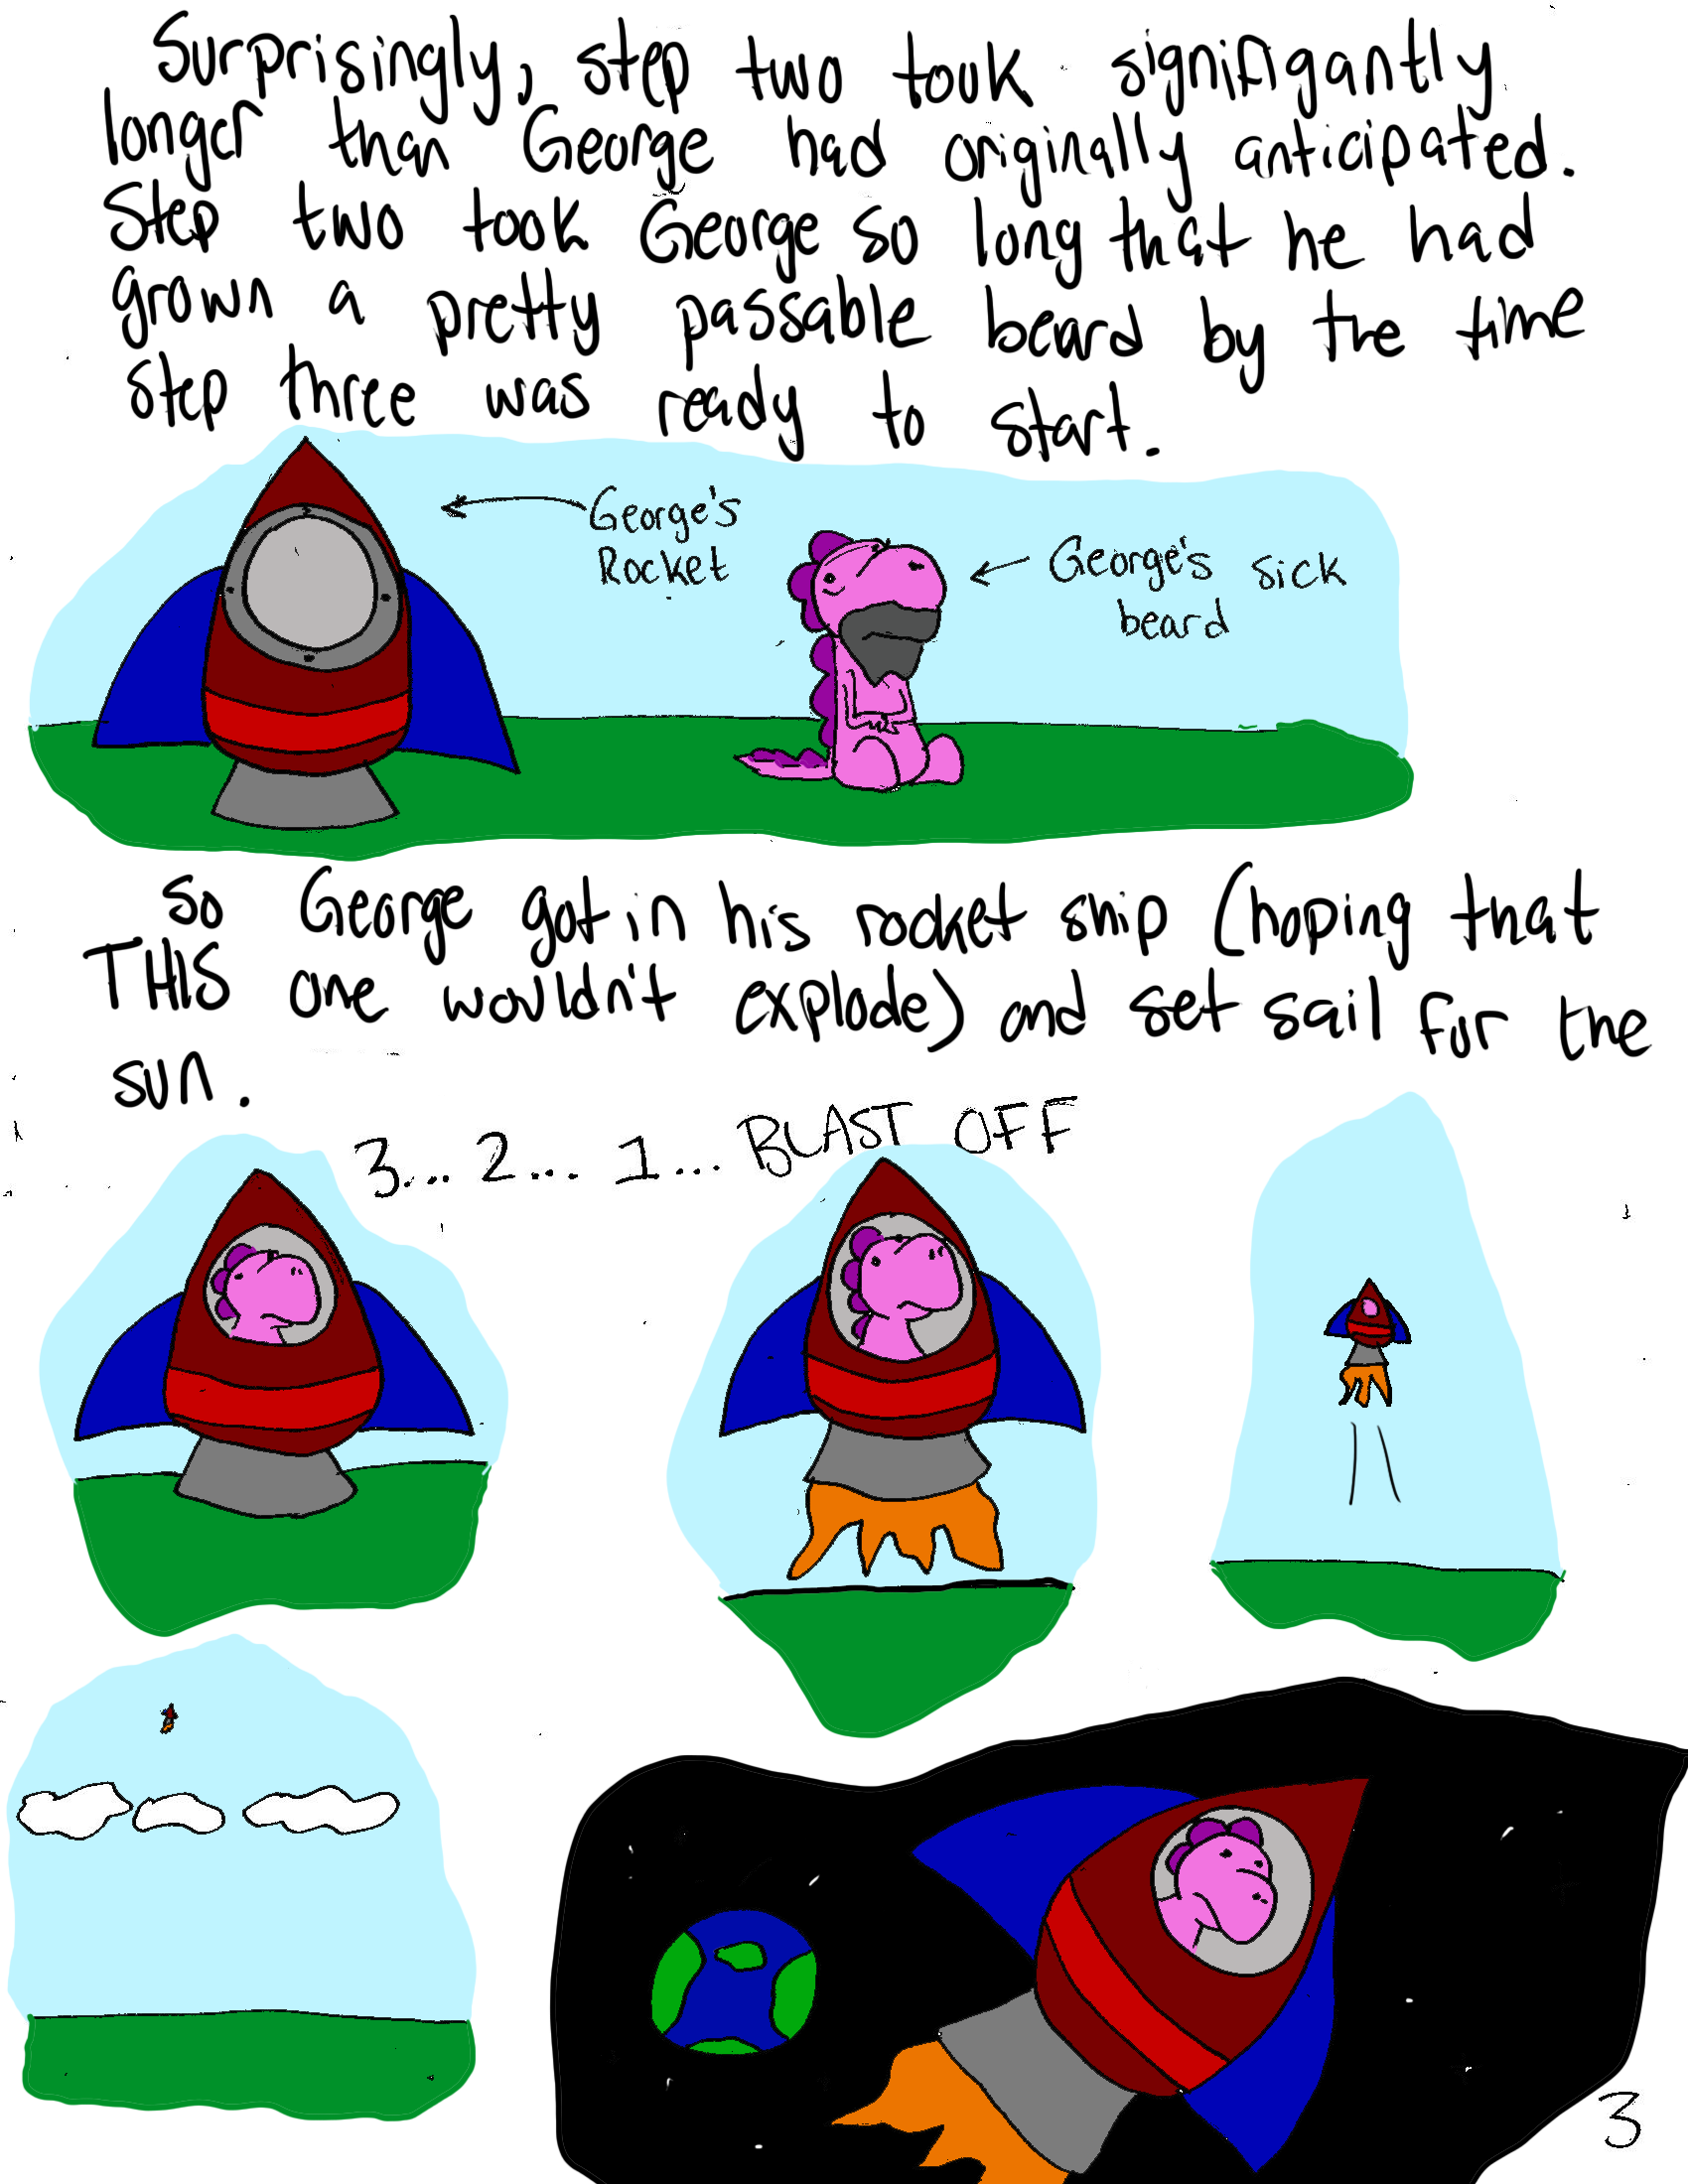 Surprisingly, step two took signifigantly
longer than George had originally anticipated.
Step two took George so long that he had
grown a pretty passable beard by the time
step three was ready to start.
George's
Rocket
George's sick
beard
So George got in his rocket ship (hoping that
THIS one wouldn't explode) and set sail for the
sun.
3... 2... 1... BLAST OFF
3